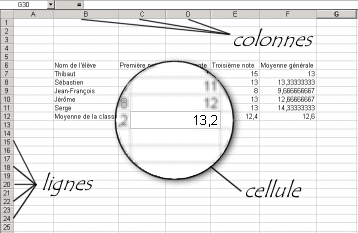 G30 =
A B C D E F G
1
2
3 colonnes
4
5
6 Nom de l'élève Première note Troisième note Moyenne générale
7 Thibaut 15 13
8 Sébastien 11 13 13,33333333
9 Jean-François 8 8 9,666666667
10 Jérôme 12 13 12,66666667
11 Serge 13 14,33333333
12 Moyenne de la class ,2 13,2 12,4 12,6
13
14
15
16
17
18
19 lignes
20 cellule
21
22
23
24
25